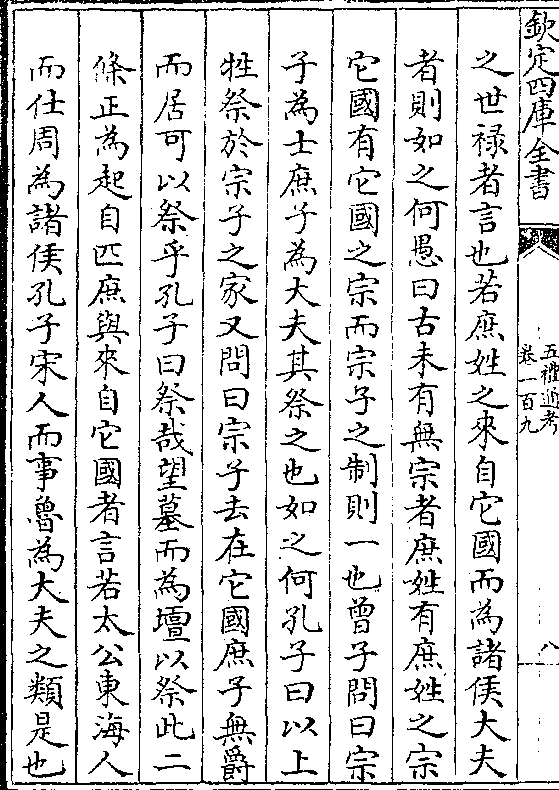 欽定四庫全書
五禮通考
卷一百九
八
之世祿者言也若庶姓之來自它國而為諸侯大夫
者則如之何愚曰古未有無宗者庶姓有庶姓之宗
它國有它國之宗而宗子之制則一也曾子問曰宗
子為士庶子為大夫其祭之也如之何孔子曰以上
牲祭於宗子之家又問曰宗子去在它國庶子無爵
而居可以祭乎孔子曰祭哉望墓而為壇以祭此二
條正為起自匹庶與來自它國者言若太公東海人
而仕周為諸侯孔子宋人而事魯為大夫之類是也